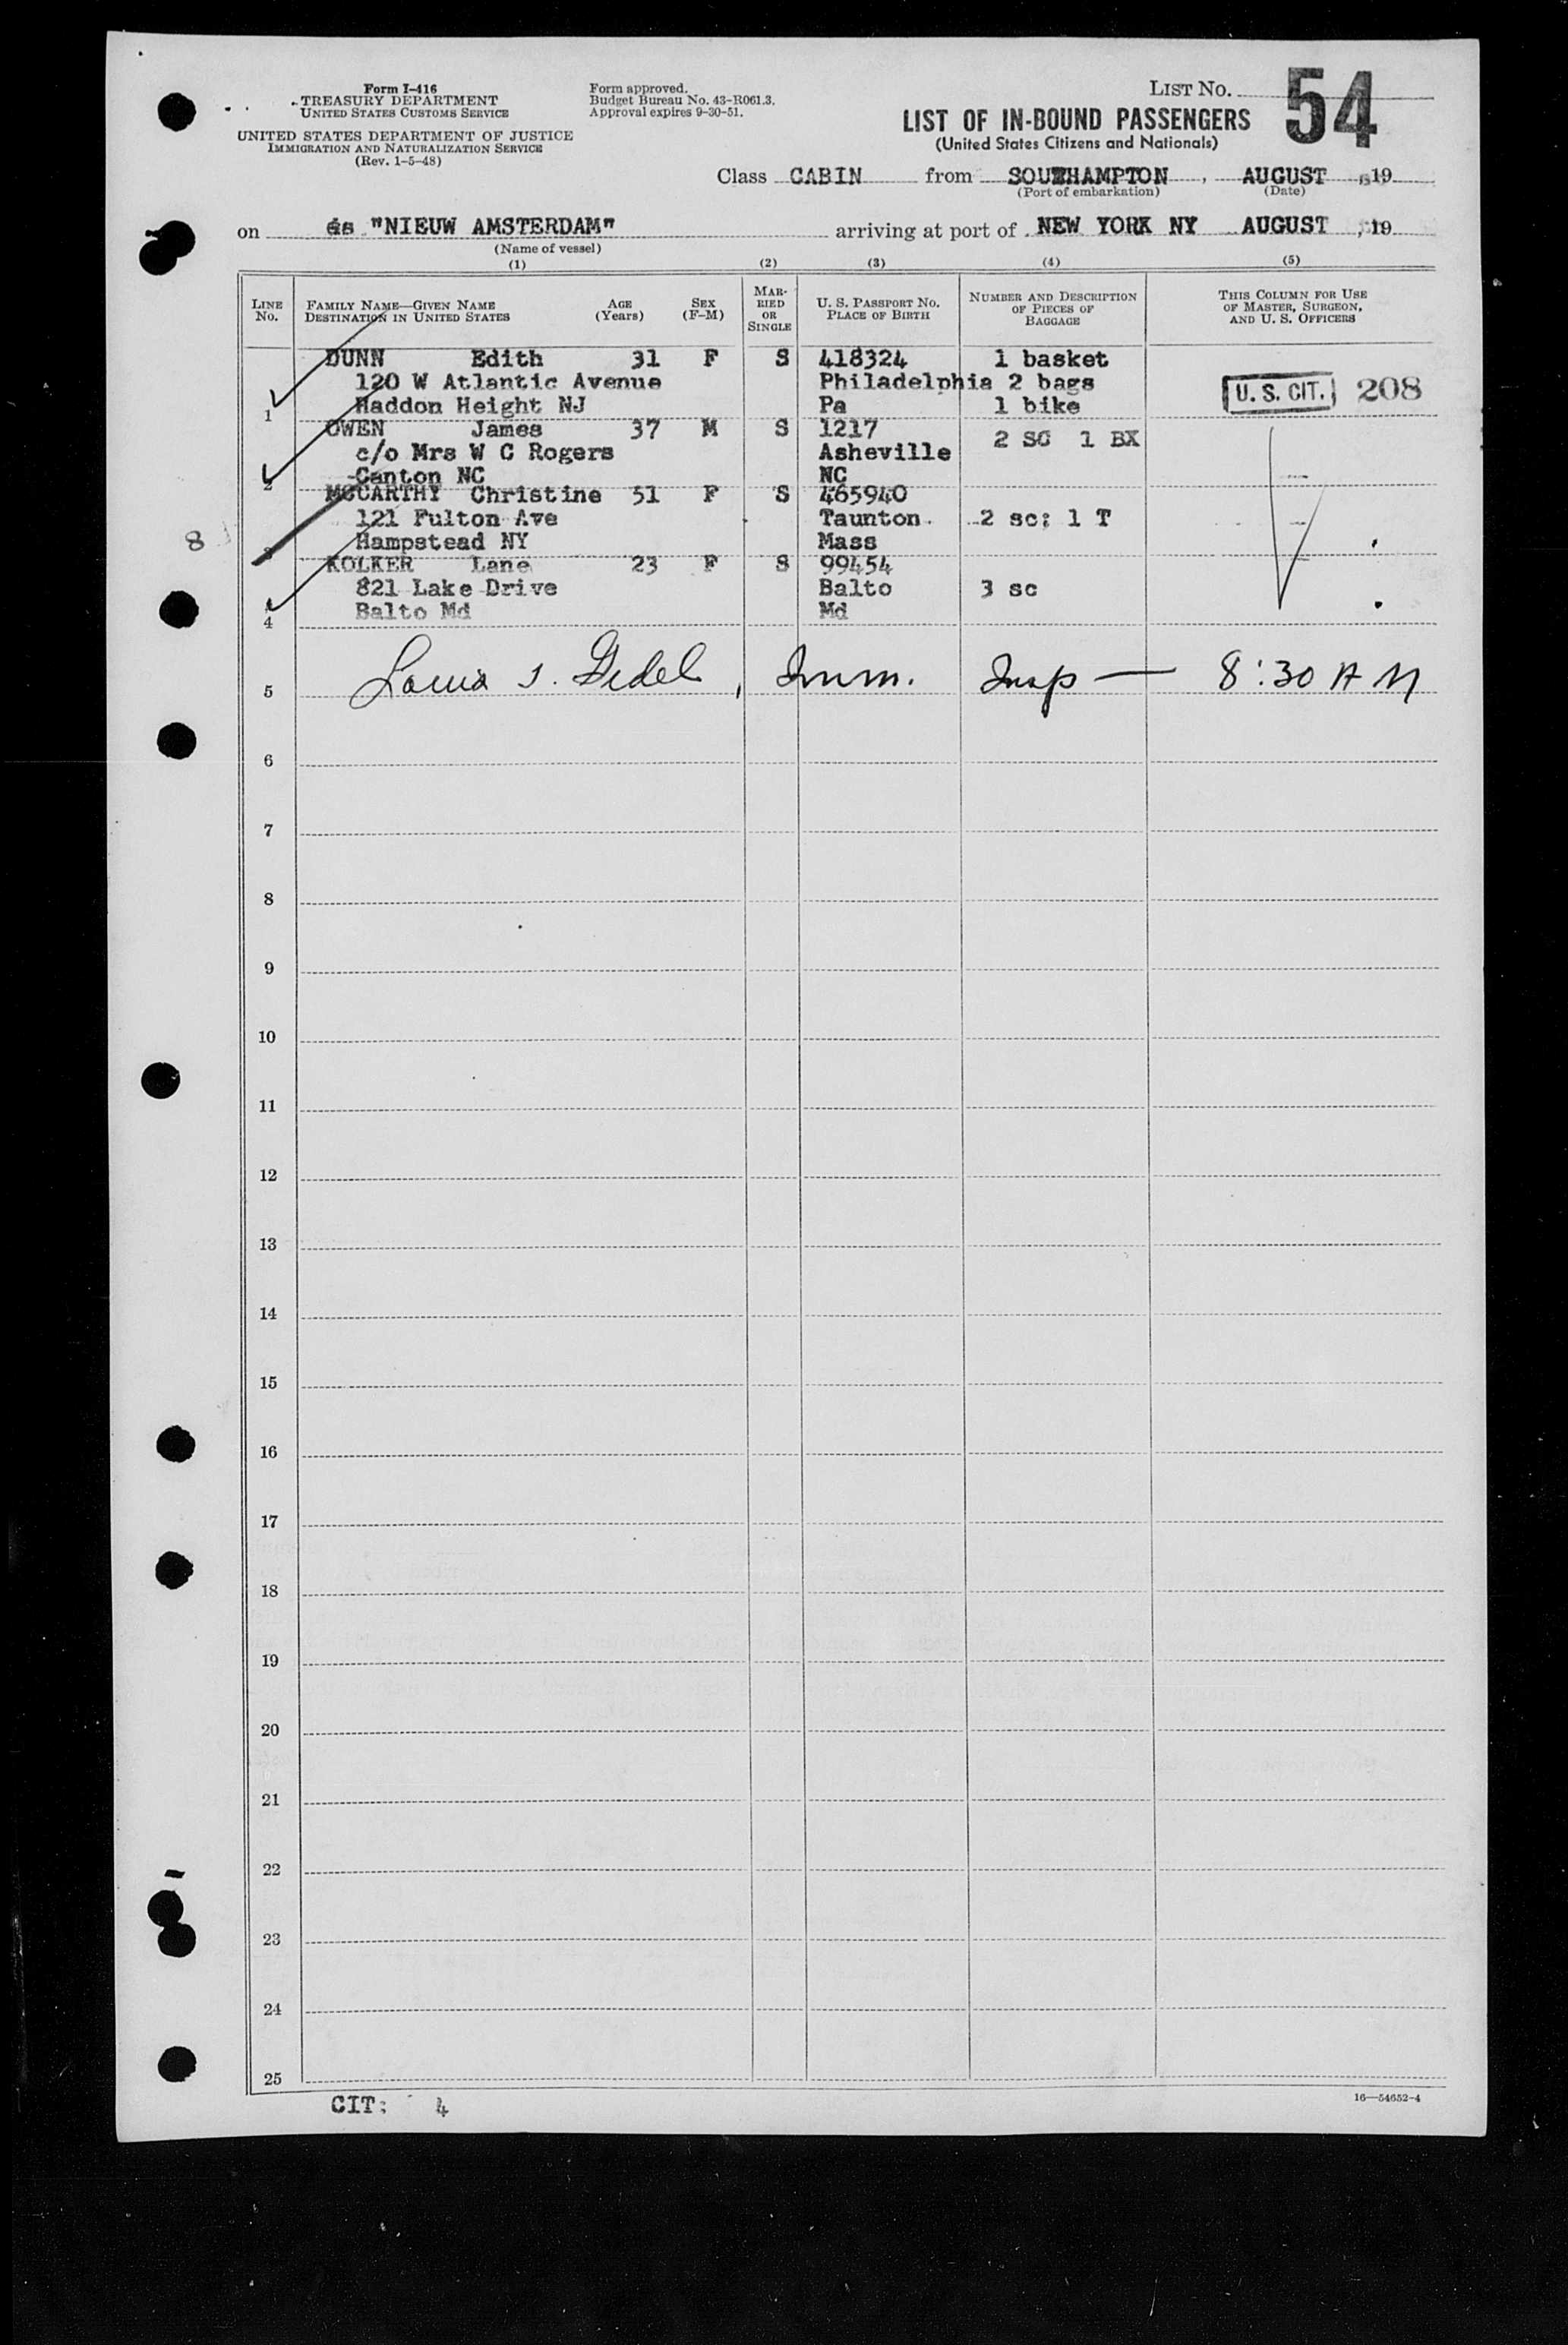 Form I-416
TREASURY DEPARTMENT
UNITED STATES CUSTOMS SERVICE
UNITED STATES DEPARTMENT OF JUSTICE
IMMIGRATION AND NATURALIZATION SERVICE
(Rev. 1-5-48)
Form approved.
Budget Bureau No. 43-R061.3.
Approval expires 9-30-51.
LIST NO. 54
LIST OF IN-BOUND PASSENGERS
(United States Citizens and Nationals)
Class CABIN from SOUTHAMPTON, AUGUST, 19
(Port of embarkation) (Date)
on ss "NIEUW AMSTERDAM" arriving at port of NEW YORK NY AUGUST, 19
(Name of vessel)
(1) (2) (3) (4) (5)
LINE NO. FAMILY NAME—GIVEN NAME DESTINATION IN UNITED STATES AGE (Years) SEX (F-M) MARRIED OR SINGLE U. S. PASSPORT NO. PLACE OF BIRTH NUMBER AND DESCRIPTION OF PIECES OF BAGGAGE THIS COLUMN FOR USE OF MASTER, SURGEON, AND U. S. OFFICERS
DUNN Edith 31 F S 418324 1 basket
120 W Atlantic Avenue Philadelphia 2 bags U. S. CIT. 208
1 Haddon Height NJ Pa 1 bike
OWEN James 37 M S 1217 2 SC 1 BX
c/o Mrs W C Rogers Asheville
2 Canton NC NC
MCCARTHY Christine 51 F S 465940
121 Fulton Ave Taunton 2 sc; 1 T
8 3 Hampstead NY Mass
KOLKER Lane 23 F S 99454
821 Lake Drive Balto 3 sc
4 Balto Md Md
5 Louis S. Gidel, Imm. Insp — 8:30 AM
6
7
8
9
10
11
12
13
14
15
16
17
18
19
20
21
22
23
24
25
CIT: 4
16—54652-4